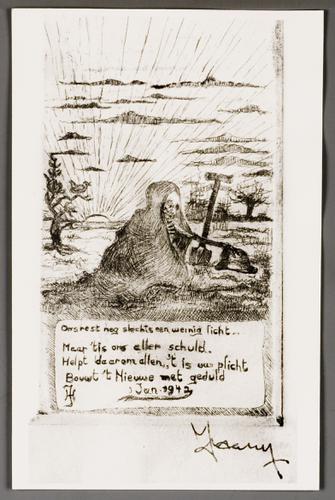 Ons rest nog slechts een weinig licht..
Maar 'tis ons aller schuld..
Helpt daarom allen, 't is uw plicht
Bouwt 't Nieuwe met geduld
1 Jan. 1942